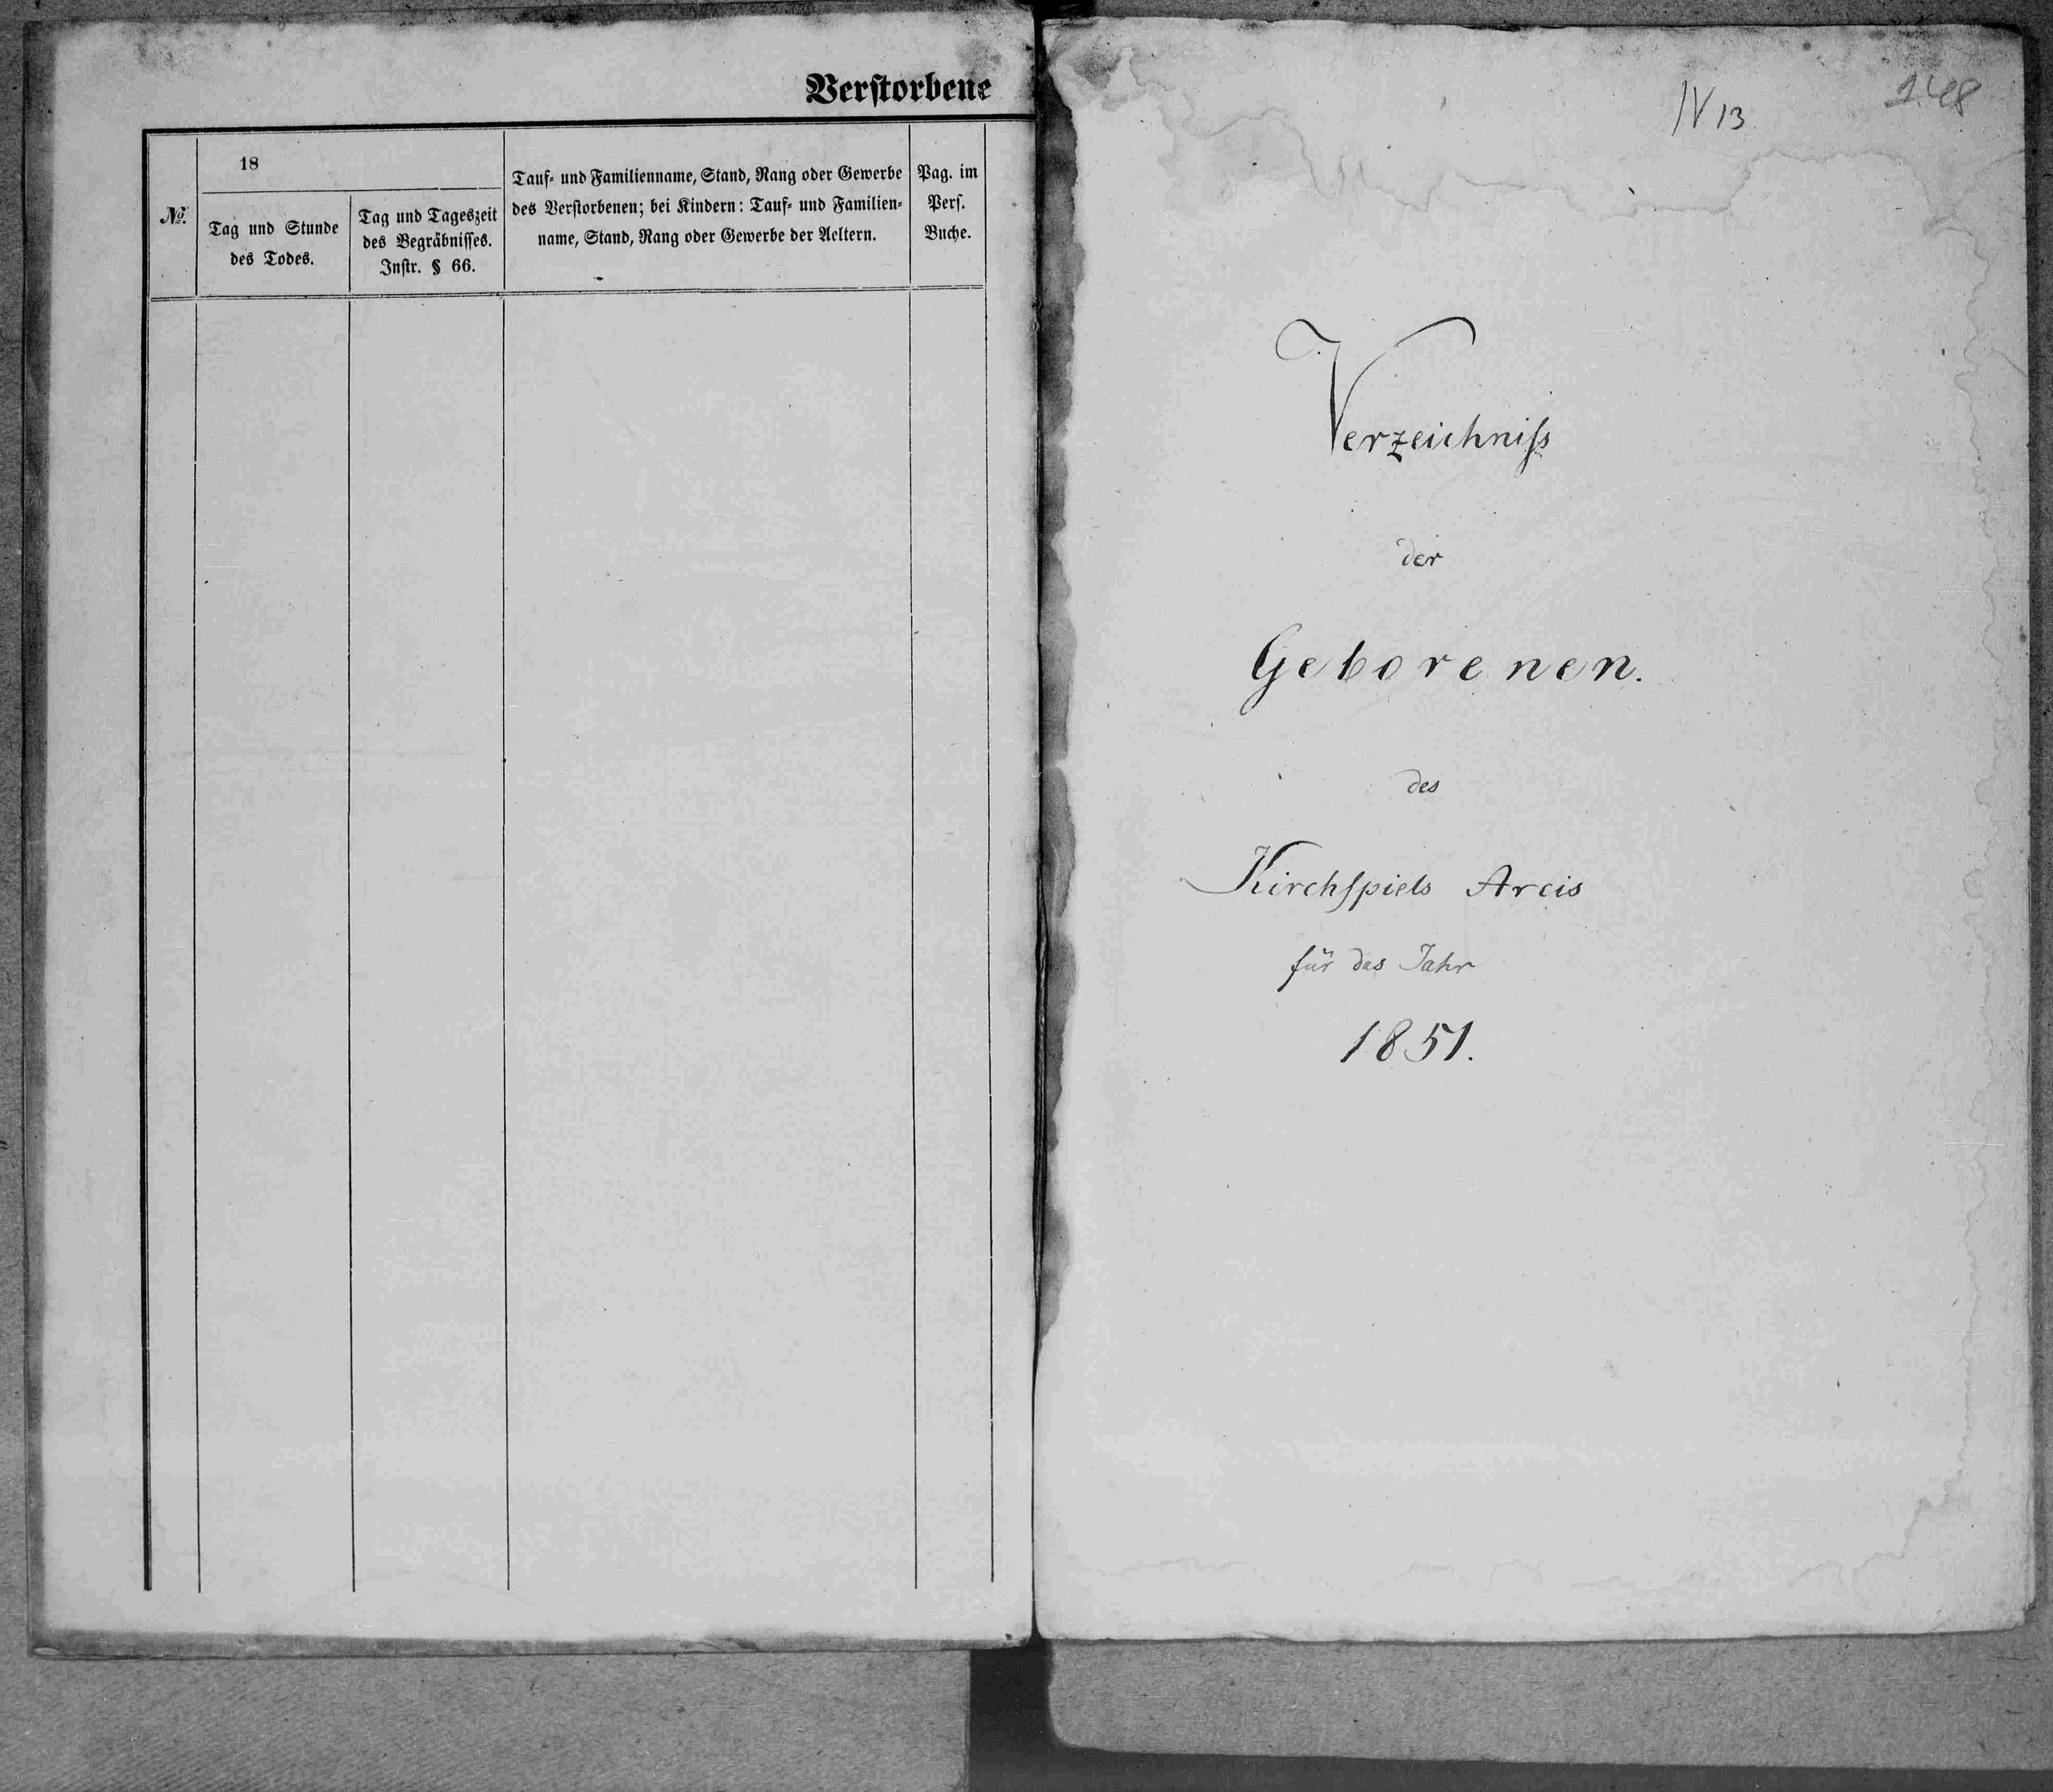 Verstorbene
№.
18
Tag und Stunde
des Todes.
Tag und Tageszeit
des Begräbnisses.
Instr. § 66.
Tauf- und Familienname, Stand, Rang oder Gewerbe
des Verstorbenen; bei Kindern: Tauf- und Familien-
name, Stand, Rang oder Gewerbe der Aeltern.
Pag. im
Pers.
Buche.
IV 13
148
Verzeichniss
der
Geborenen.
des
Kirchspiels Arcis
für das Jahr
1851.